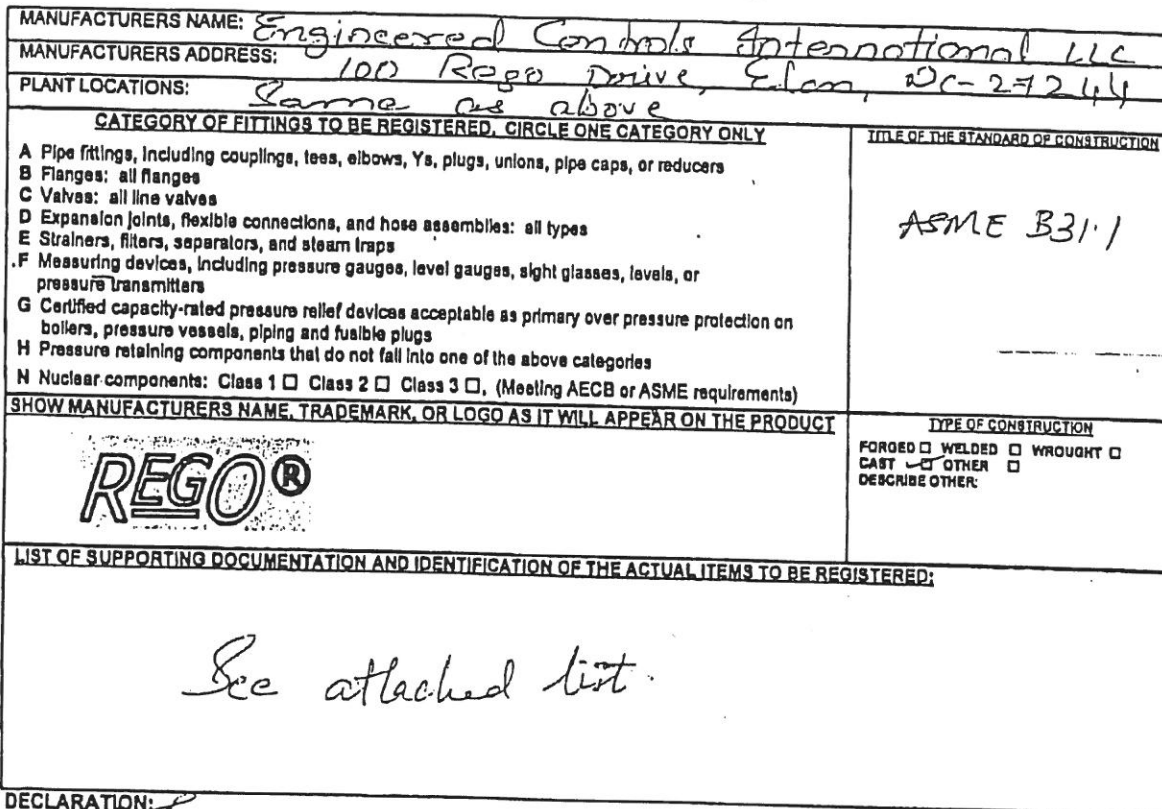 MANUFACTURERS NAME: Engineered Controls International LLC
MANUFACTURERS ADDRESS: 100 Rego Drive, Elon, NC-27244
PLANT LOCATIONS: Same as above
CATEGORY OF FITTINGS TO BE REGISTERED, CIRCLE ONE CATEGORY ONLY
A Pipe fittings, including couplings, tees, elbows, Ys, plugs, unions, pipe caps, or reducers
B Flanges: all flanges
C Valves: all line valves
D Expansion joints, flexible connections, and hose assemblies: all types
E Strainers, filters, separators, and steam traps
F Measuring devices, including pressure gauges, level gauges, sight glasses, levels, or
pressure transmitters
G Certified capacity-rated pressure relief devices acceptable as primary over pressure protection on
boilers, pressure vessels, piping and fusible plugs
H Pressure retaining components that do not fall into one of the above categories
N Nuclear components: Class 1 ☐ Class 2 ☐ Class 3 ☐, (Meeting AECB or ASME requirements)
TITLE OF THE STANDARD OF CONSTRUCTION
ASME B31.1
SHOW MANUFACTURERS NAME, TRADEMARK, OR LOGO AS IT WILL APPEAR ON THE PRODUCT
REGO®
TYPE OF CONSTRUCTION
FORGED ☐ WELDED ☐ WROUGHT ☐
CAST ☑ OTHER ☐
DESCRIBE OTHER:
LIST OF SUPPORTING DOCUMENTATION AND IDENTIFICATION OF THE ACTUAL ITEMS TO BE REGISTERED:
See attached list.
DECLARATION: